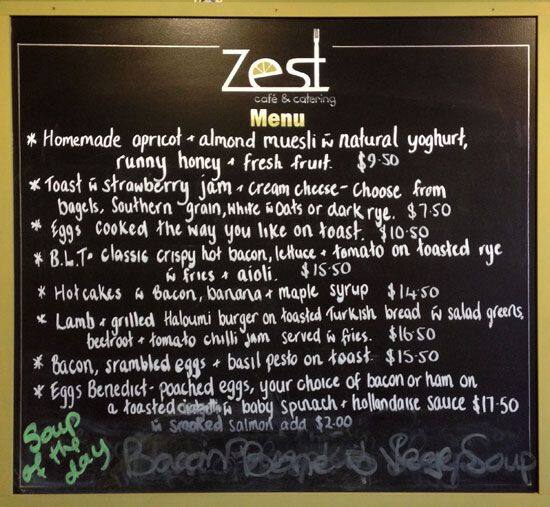 Zest
café & catering
Menu
* Homemade apricot + almond muesli w̄ natural yoghurt,
runny honey + fresh fruit. $9.50
* Toast w̄ strawberry jam + cream cheese - choose from
bagels, Southern grain, white w̄ oats or dark rye. $7.50
* Eggs cooked the way you like on toast. $10.50
* B.L.T - classic crispy hot bacon, lettuce + tomato on toasted rye
w̄ fries + aioli. $15.50
* Hotcakes w̄ Bacon, banana + maple syrup $14.50
* Lamb + grilled Haloumi burger on toasted Turkish bread w̄ salad greens,
beetroot + tomato chilli jam served w̄ fries. $16.50
* Bacon, srambled eggs + basil pesto on toast. $15.50
* Eggs Benedict - poached eggs, your choice of bacon or ham on
a toasted w̄ baby spinach + hollandaise sauce $17.50
w̄ smoked salmon add $2.00
Soup
of the
day
Bacon Soup